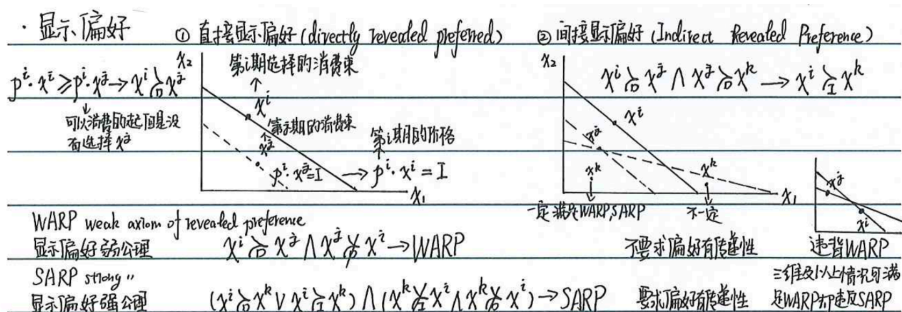 · 显示偏好
① 直接显示偏好 (directly revealed preferred)
② 间接显示偏好 (Indirect Revealed Preference)
x₂
第i期选择的消费束
pⁱ·xⁱ ≥ pⁱ·xʲ → xⁱ ≿_D xʲ
xⁱ
可以消费的起但是没
而选择 xʲ
第j期的消费束
xʲ
第i期的价格
pⁱ·xʲ=I
→ pⁱ·xⁱ = I
x₁
x₂
xⁱ ≿_D xʲ ∧ xʲ ≿_D xᵏ → xⁱ ≿_I xᵏ
xⁱ
xʲ
xᵏ
xᵏ
x₁
一定满足WARP,SARP
不一定
xʲ
xⁱ
WARP weak axiom of revealed preference
显示偏好弱公理
xⁱ ≿_D xʲ ∧ xʲ ⋡_D xⁱ → WARP
不要求偏好有传递性
违背WARP
SARP strong "
显示偏好强公理
(xⁱ ≿_D xᵏ ∨ xⁱ ≿_I xᵏ) ∧ (xᵏ ⋡_I xⁱ ∧ xᵏ ⋡_D xⁱ) → SARP
要求偏好有传递性
三维及以上情况可满
足WARP不违反SARP